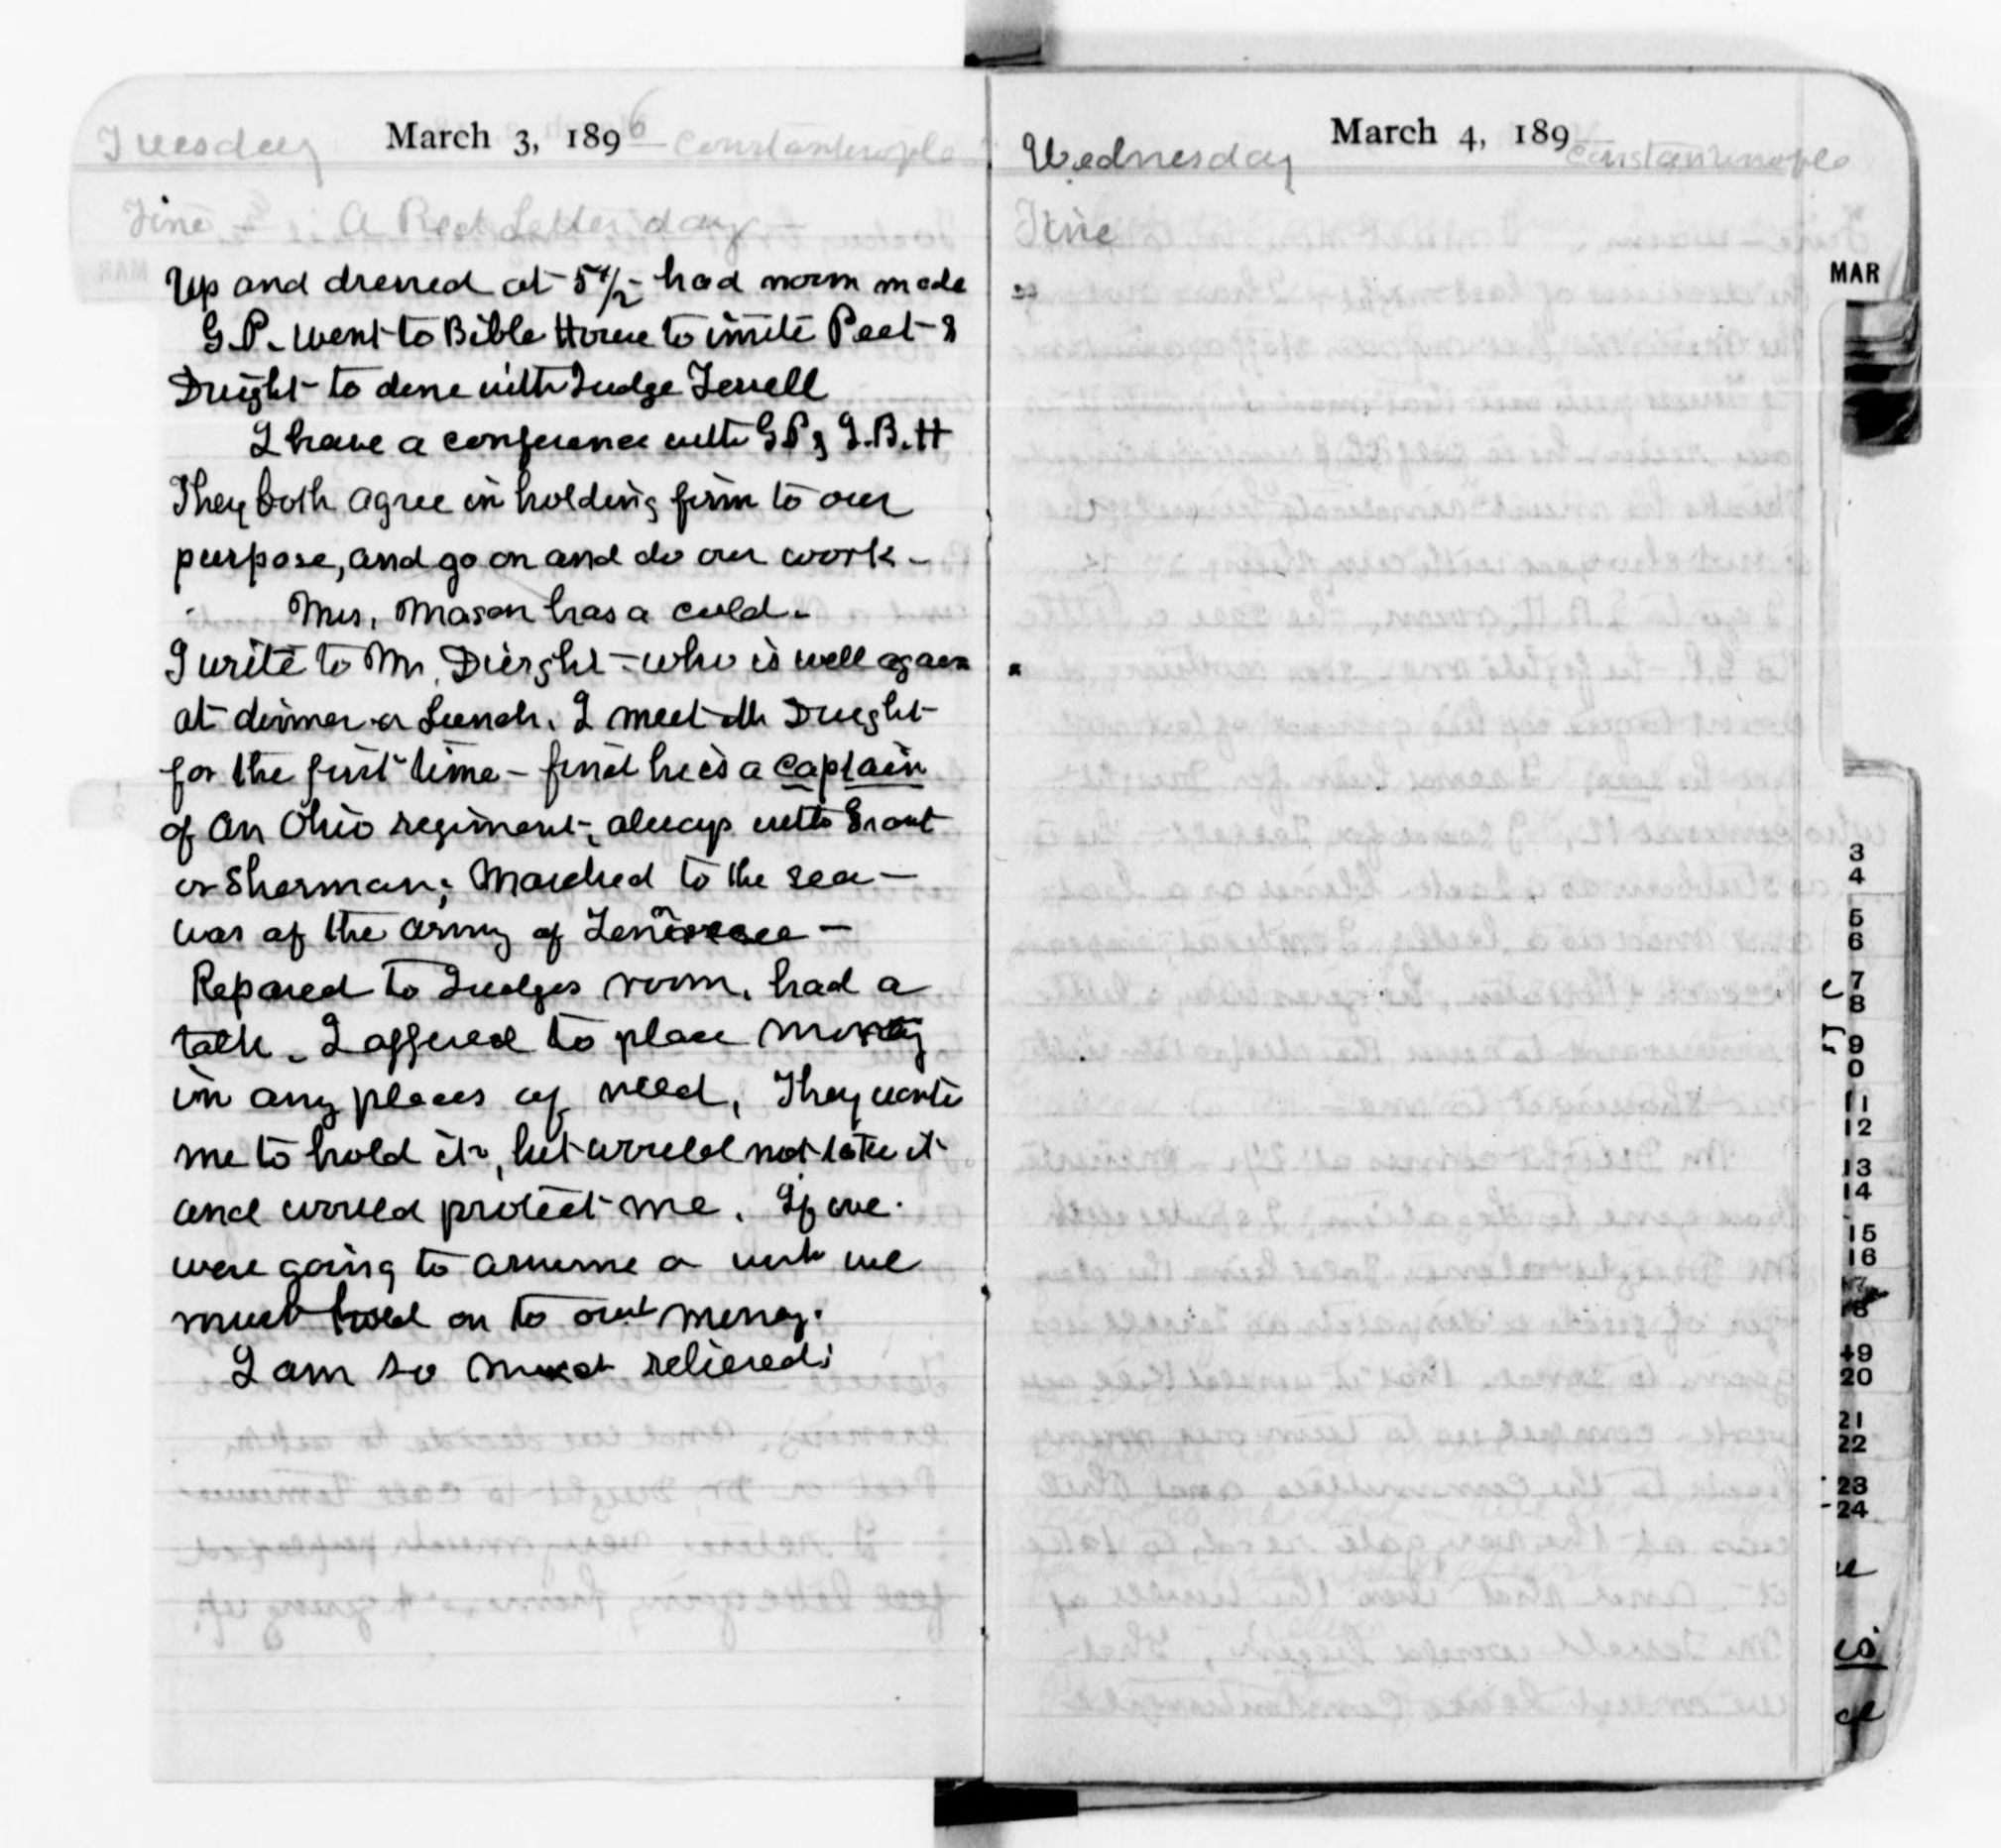 Tuesday March 3, 1896 Constantinople
Fine - A Red Letter day
Up and dressed at 5 1/2 - had room made
G.P. went to Bible House to invite Peet &
Dwight to dine with Judge Terrell
I have a conference with G.P & J.B.H
They both agree in holding firm to our
purpose, and go on and do our work -
Mrs. Mason has a cold -
I write to Mr. Dwight - who is well again
at dinner or Lunch. I meet Mr Dwight
for the first time - find he is a captain
of an Ohio regiment, always with Grant
or Sherman; Marched to the sea -
was of the army of Tennessee -
Repared to Judges room, had a
talk - I offered to place money
in any places of need, They want
me to hold it, but would not take it
and would protect me. If we
were going to assume a work we
must hold on to our money.
I am so much relieved;
Wednesday March 4, 189 Constantinople
Fine
MAR
3
4
5
6
7
8
9
0
11
12
13
14
15
16
19
20
21
22
23
24